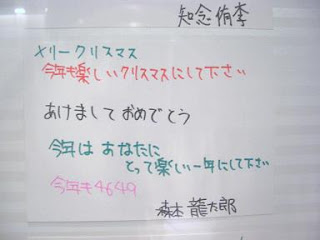 知念侑李
メリークリスマス
今年も楽しいクリスマスにして下さい
あけまして おめでとう
今年は あなたに
とって楽しい一年にして下さい
今年も4649
森本 龍太郎